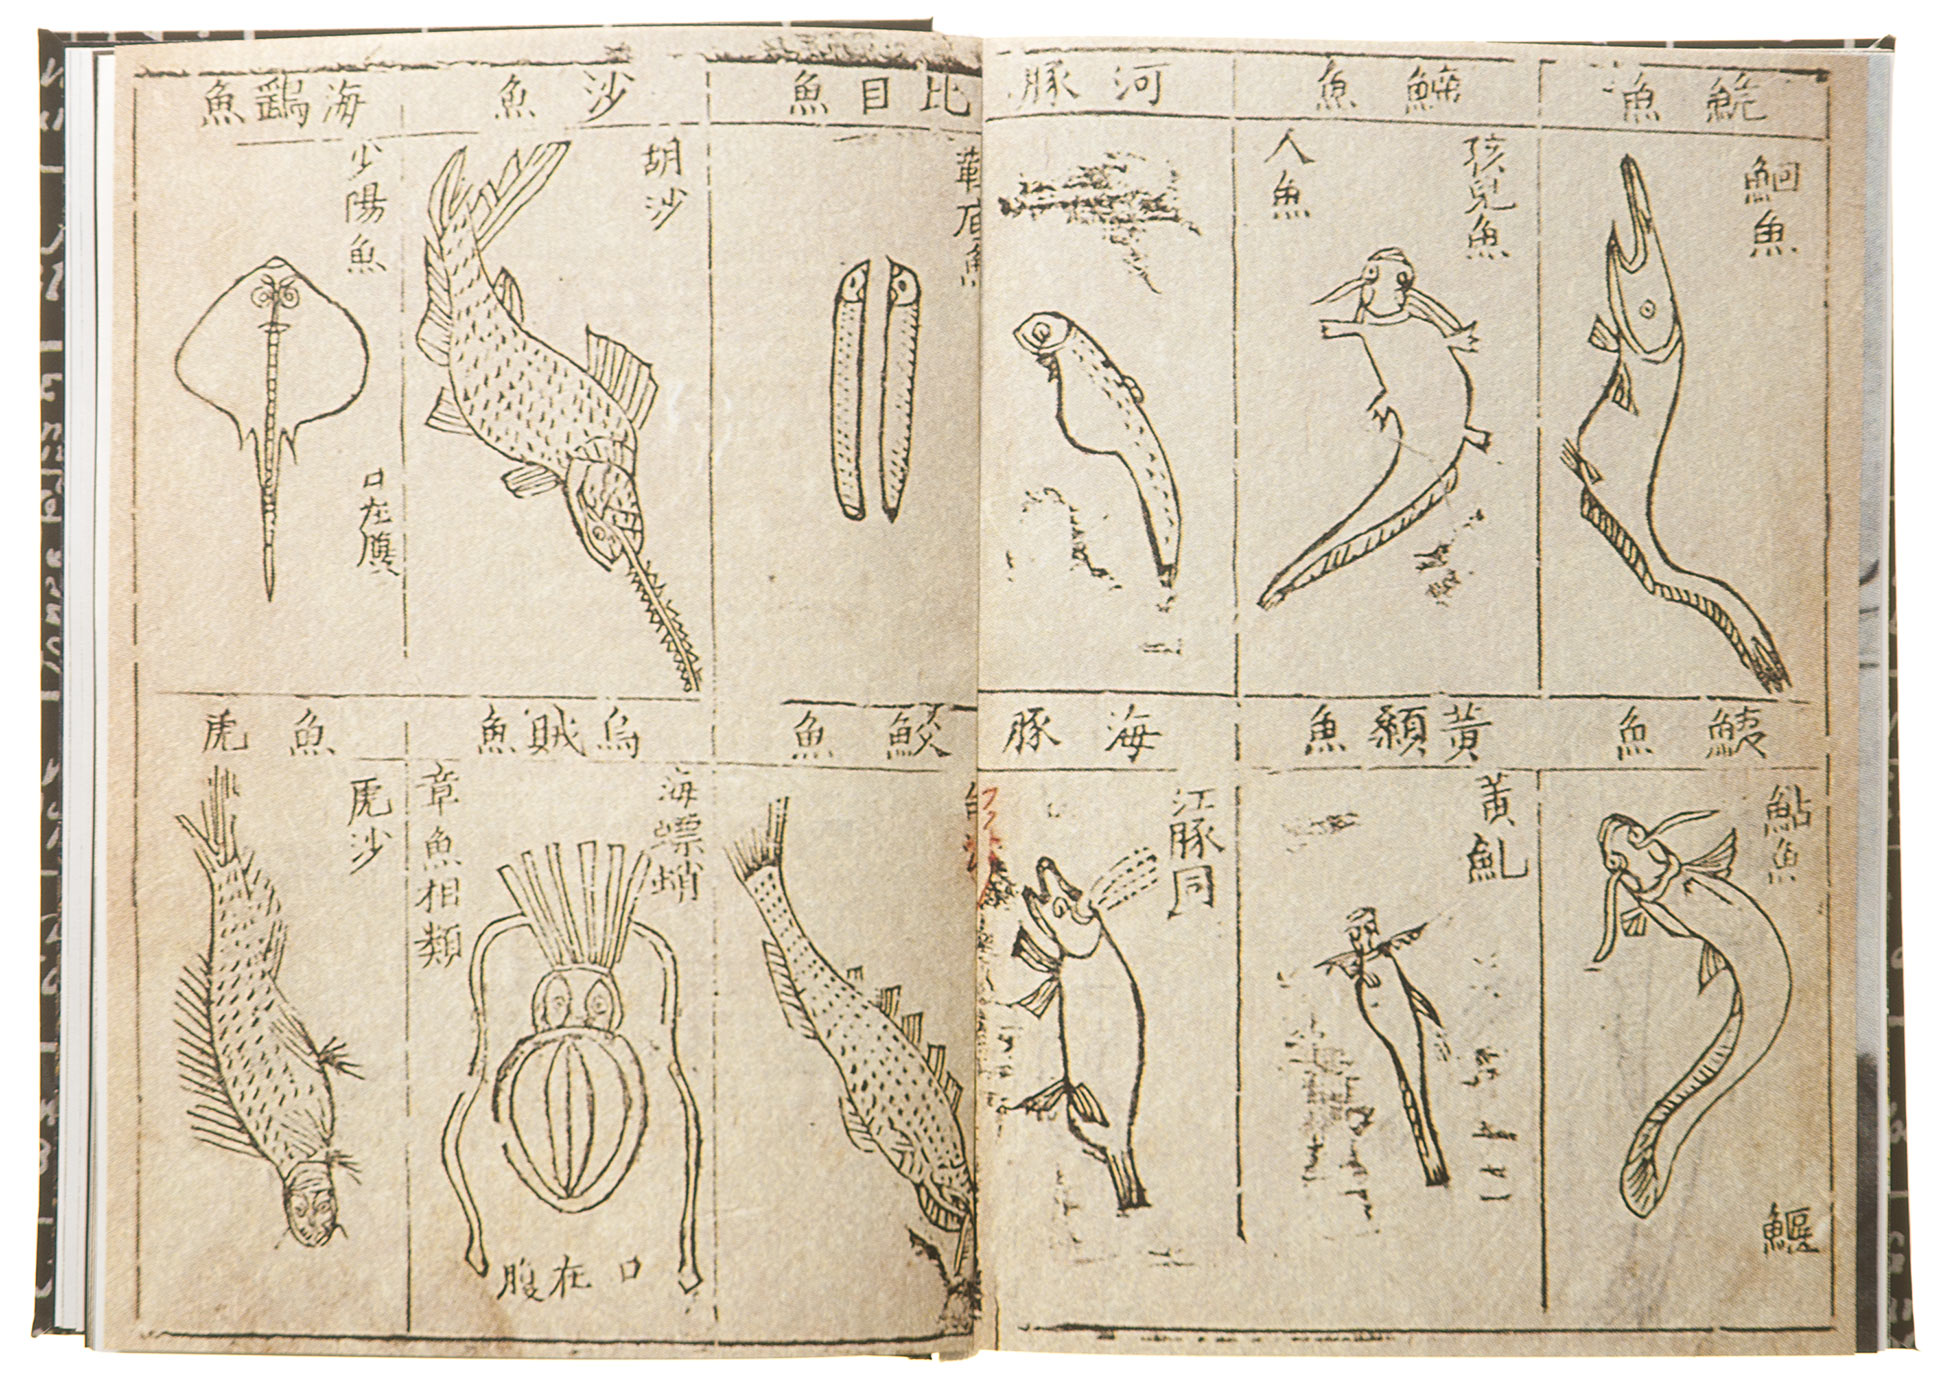 鮠魚
鮰魚
䱱魚
孩兒魚
人魚
河豚
比目魚
鞋底魚
沙魚
胡沙
海鷂魚
少陽魚
口在
鮧魚
鮎魚
鰋
黃顙魚
黃䰲
海豚
江豚同
鮫魚
烏賊魚
海螵蛸
章魚相類
口在腹
魚虎
虎沙